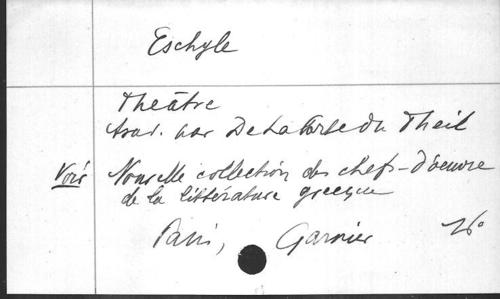 Eschyle
Théâtre
trad. par De La Porte du Theil
Voir Nouvelle collection des chefs-d'oeuvre
de la littérature grecque
Paris, Garnier 16°